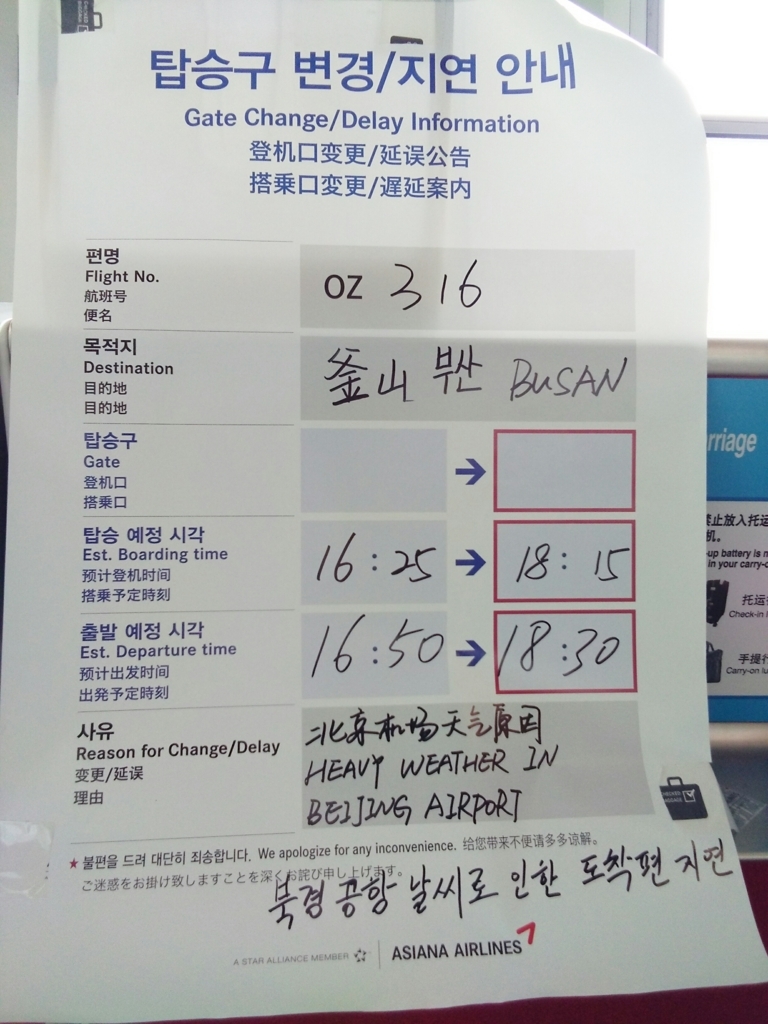 탑승구 변경/지연 안내
Gate Change/Delay Information
登机口变更/延误公告
搭乗口変更/遅延案内
편명
Flight No.
航班号
便名
OZ 316
목적지
Destination
目的地
目的地
釜山 부산 BUSAN
탑승구
Gate
登机口
搭乗口
탑승 예정 시각
Est. Boarding time
预计登机时间
搭乗予定時刻
16:25 → 18:15
출발 예정 시각
Est. Departure time
预计出发时间
出発予定時刻
16:50 → 18:30
사유
Reason for Change/Delay
变更/延误
理由
北京机场天气原因
HEAVY WEATHER IN
BEIJING AIRPORT
★ 불편을 드려 대단히 죄송합니다. We apologize for any inconvenience. 给您带来不便请多多谅解。
ご迷惑をお掛け致しますことを深くお詫び申し上げます。
북경 공항 날씨로 인한 도착편 지연
A STAR ALLIANCE MEMBER
ASIANA AIRLINES
rriage
禁止放入托运
机。
-up battery is n
in your carry-o
托运
Check-in l
手提行
Carry-on lu